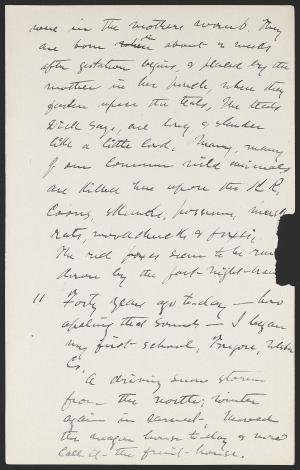 were in the mothers womb. They
are born when about 2 weeks
after gestation begins, & placed by the
mother in her pouch, where they
fasten upon the teats, The teats
Dick says, are long & slender
like a little cord. Many, many
of our common wild animals
are killed here upon the R.R.
Coons, skunks, possums, musk
rats, woodchucks & foxes,
The red foxes seem to be run
down by the fast night-trains
11 Forty years ago to-day — how
appaling that sounds — I began
my first school, Tongore, Ulster
Co.
A driving snow storm
from the north; winter
again in earnest. Moved
the wagon house to-day & now
call it the fruit-house.